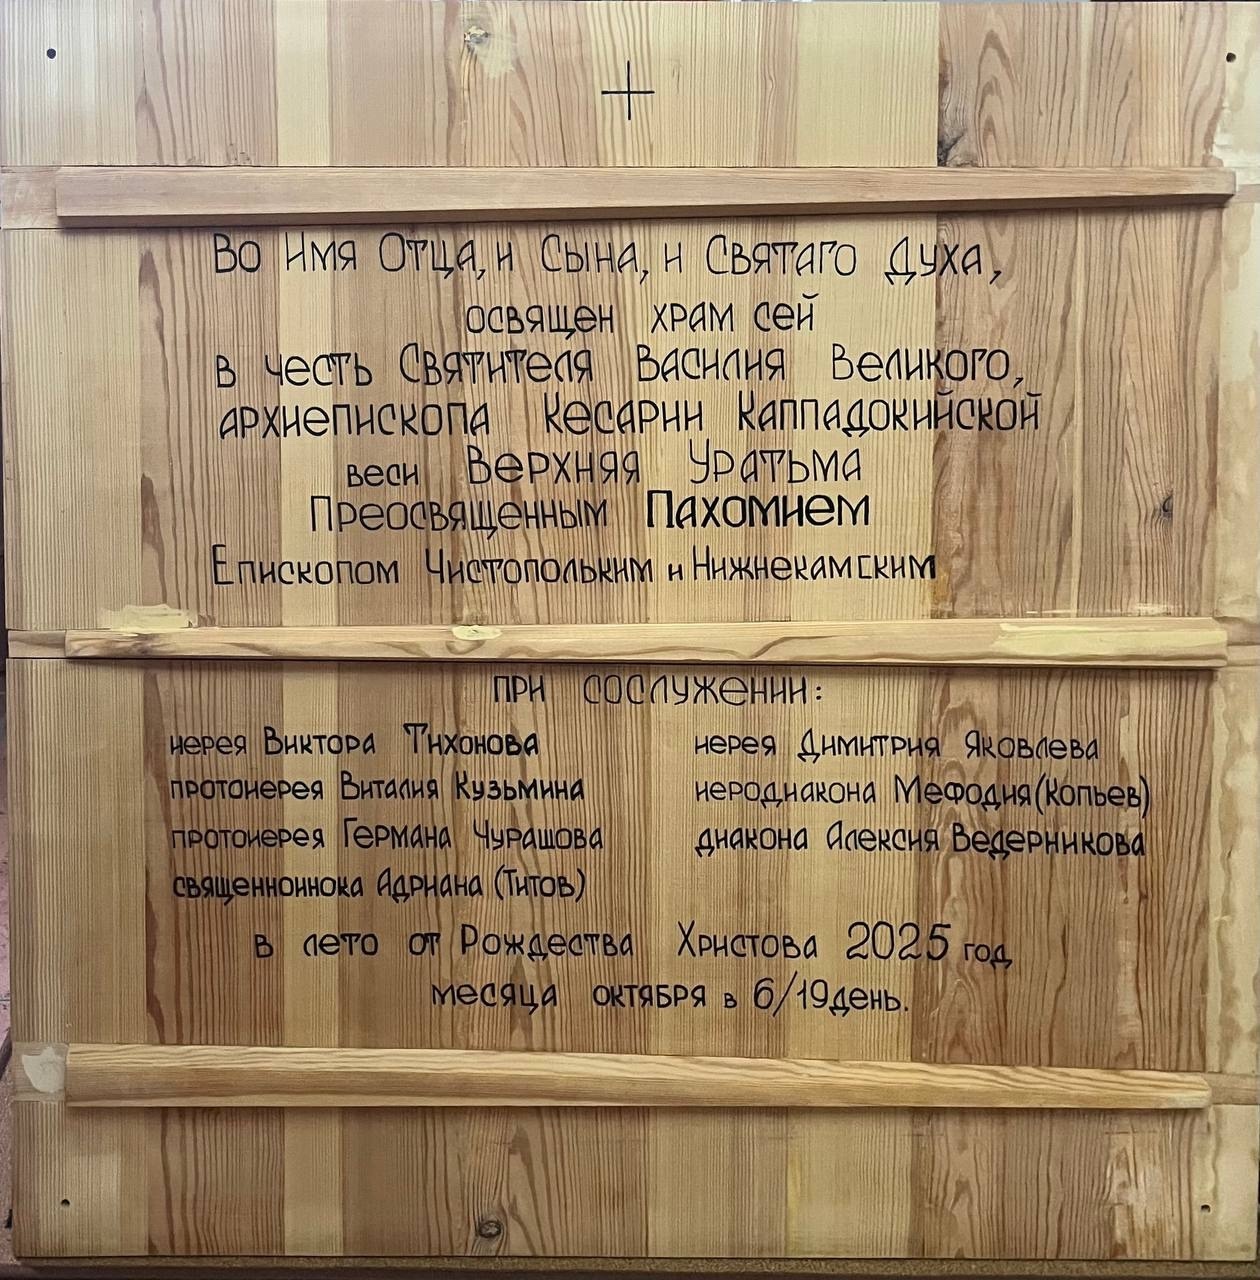 Во Имя Отца, и Сына, и Святаго Духа,
освящен храм сей
в честь Святителя Василия Великого,
архиепископа Кесарии Каппадокийской
веси Верхняя Уратьма
Преосвященным Пахомием
Епископом Чистопольким и Нижнекамским
при сослужении:
иерея Виктора Тихонова
протоиерея Виталия Кузьмина
протоиерея Германа Чурашова
священноинока Адриана (Титов)
иерея Димитрия Яковлева
иеродиакона Мефодия (Копьев)
диакона Алексия Ведерникова
в лето от Рождества Христова 2025 год
месяца октября в 6/19 день.